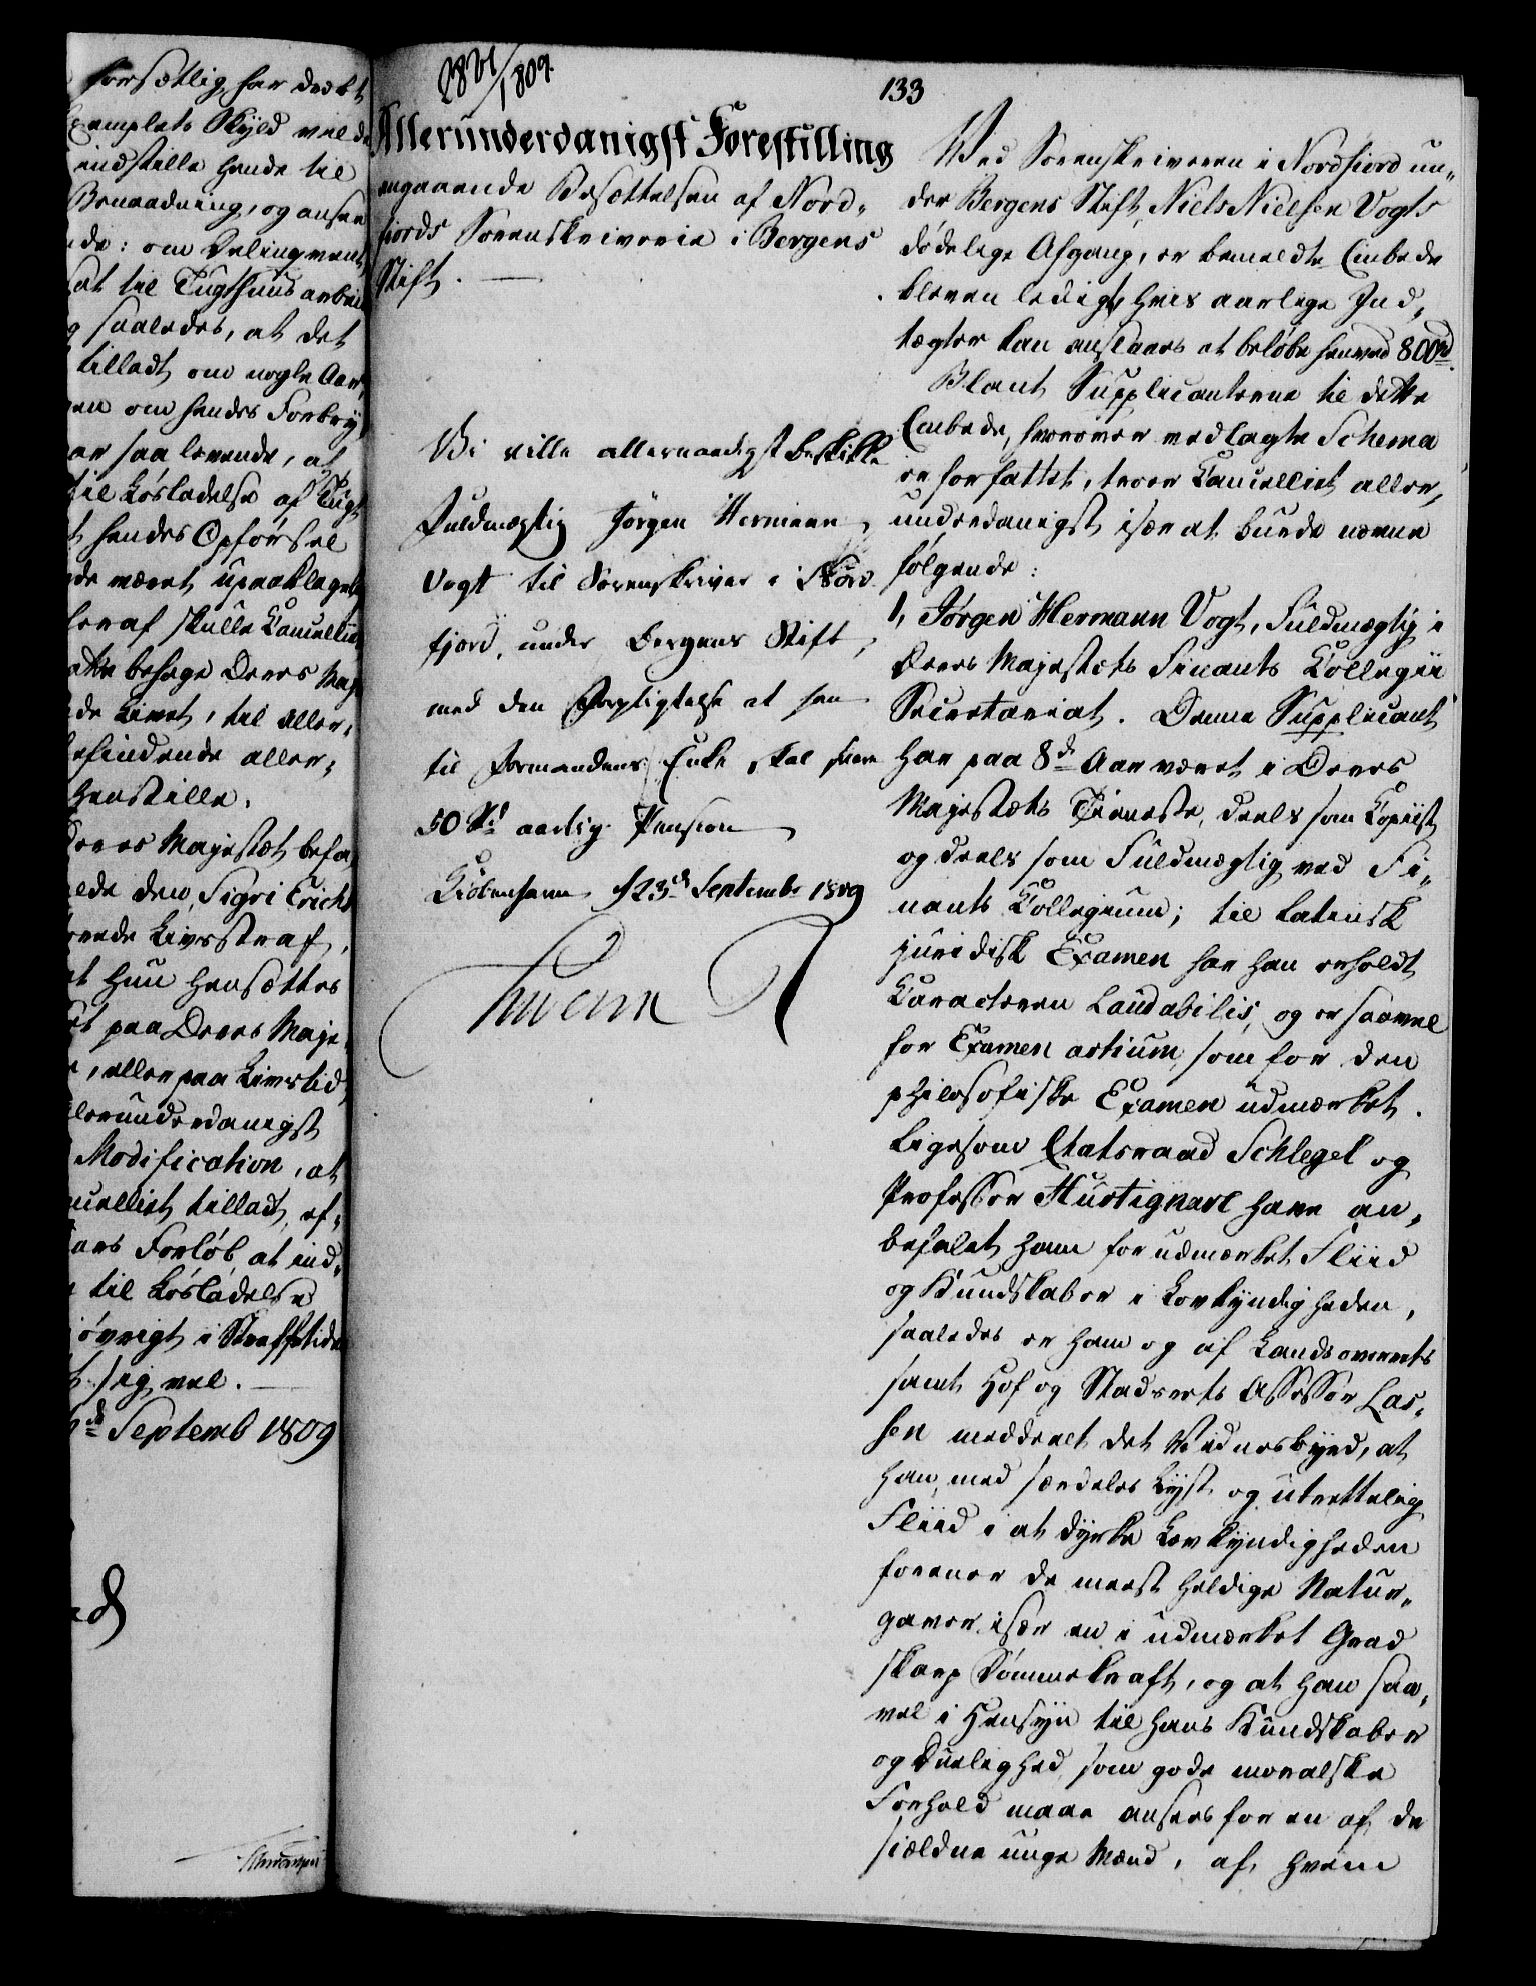 forsætlig har dræbt
Exemplets Skyld vilde
indstille hende til
Benaadning, og ansee
de: om Delinqventi
sat til Tugthuusarbei
saaledes, at det
tilladt om nogle Aar,
en om hendes Forbry
ar saa levende, at
til Løsladelse af Tugt
t hendes Opførsel
de været upaaklagel
heraf skulle Cancellie
behage Deres Maj
de Livet, til aller,
befindende aller,
henstille.
Deres Majestæt befa
lede den, Sigri Erichs
Livsstraf,
at hun hensættes
paa Deres Maje
, eller paa Livstid,
allerunderdanigst
Modification, at
Cancelliet tilladt, ef,
Aars Forløb, at ind,
til Løsladelse
øvrigt i Straffetide
sig vel.
d Septemb 1809
2821/1809.
133
Allerunderdanigst Forestilling
angaaende Besættelsen af Nord,
fiords Sorenskriverie i Bergens
Stift.
Vi ville allernaadigst beskikke
Fuldmægtig Jørgen Hermann
Vogt til Sorenskriver i Nord
fjord, under Bergens Stift,
med den Forpligtelse at han
til Formandens Enke skal svare
50 Rd aarlig Pension
Kiøbenhavn d 23d Septembr 1809
Frederik R
Ved Sorenskriveren i Nordfiord un,
der Bergens Stift, Niels Nielsen Vogts
dødelige Afgang, er bemeldte Embede
bleven ledigt, hvis aarlige Ind,
tægter kan anslaaes at beløbe henved 800rd.
Blant Supplicanterne til dette
Embede, hvorover vedlagte Schema
er forfattet, troer Cancelliet aller,
underdanigst især at burde nævne
følgende:
1, Jørgen Hermann Vogt, Fuldmægtig i
Deres Majestæts Finants Collegii
Secretariat. Denne Supplicant
har paa 8d Aar været i Deres
Majestæts Tieneste, deels som Copiist
og deels som Fuldmægtig ved Fi,
nants Collegium; til latinsk
juridisk Examen har han erholdt
Caracteren Laudabilis, og er saavel
for Examen artium, som for den
philosofiske Examen udmærket.
Ligesom Etatsraad Schlegel og
Professor Hurtigkarl have an,
befalet ham for udmærket Fliid
og Kundskaber i Lovkyndigheden,
saaledes er ham og af Landsoverrets
samt Hof og Stadsrets Assessor Las,
sen meddeelt det Vidnesbyrd, at
han med særdeles Lyst og utrættelig
Fliid i at dyrke Lovkyndigheden
forener de meest heldige Natur,
gaver, især en i udmærket Grad
skarp Dømmekraft, og at han saa,
vel i Hensyn til hans Kundskaber
og Duelighed, som gode moralske
Forhold maae ansees for en af de
siældne unge Mænd, af hvem